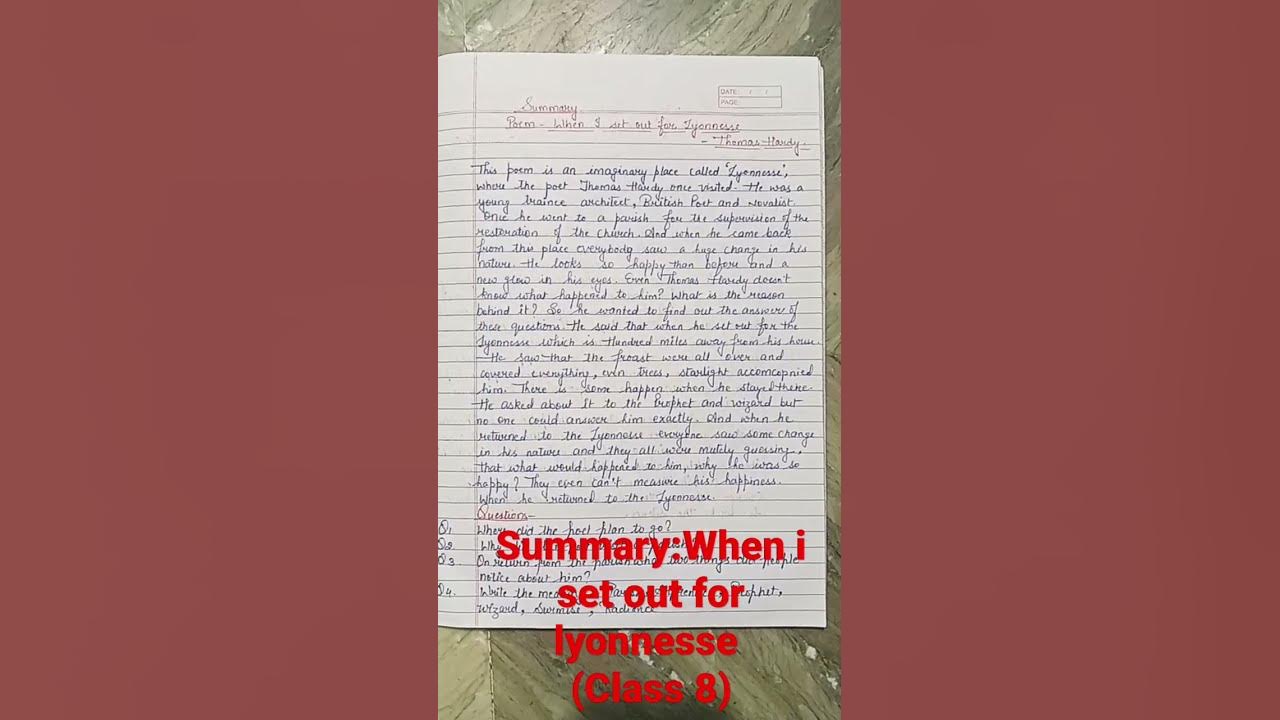 DATE: / /
PAGE:
Summary
Poem - When I set out for Lyonnesse
- Thomas Hardy.
This poem is an imaginary place called 'Lyonnesse',
where the poet Thomas Hardy once visited. He was a
young trainee architect, British Poet and Novalist.
Once he went to a parish for the supervision of the
restoration of the church. And when he came back
from this place everybody saw a huge change in his
nature. He looks so happy than before and a
new glow in his eyes. Even Thomas Hardy doesn't
know what happened to him? What is the reason
behind it? So he wanted to find out the answer of
these questions. He said that when he set out for the
Lyonnesse which is Hundred miles away from his house.
He saw that the froast were all over and
covered everything, even trees, starlight accomcopnied
him. There is some happen when he stayed there.
He asked about it to the Prophet and wizard but
no one could answer him exactly. And when he
returned to the Lyonnesse everyone saw some change
in his nature and they all were mutely guessing,
that what would happened to him, why he was so
happy? They even can't measure his happiness.
When he returned to the Lyonnesse.
Questions-
Q1 Where did the poet plan to go?
Q2. Why
Q3. On return from the parish what two things did people
notice about him?
Q4. Write the Prophet,
wizard, surmise, Radience
Summary:When i
set out for
lyonnesse
(Class 8)